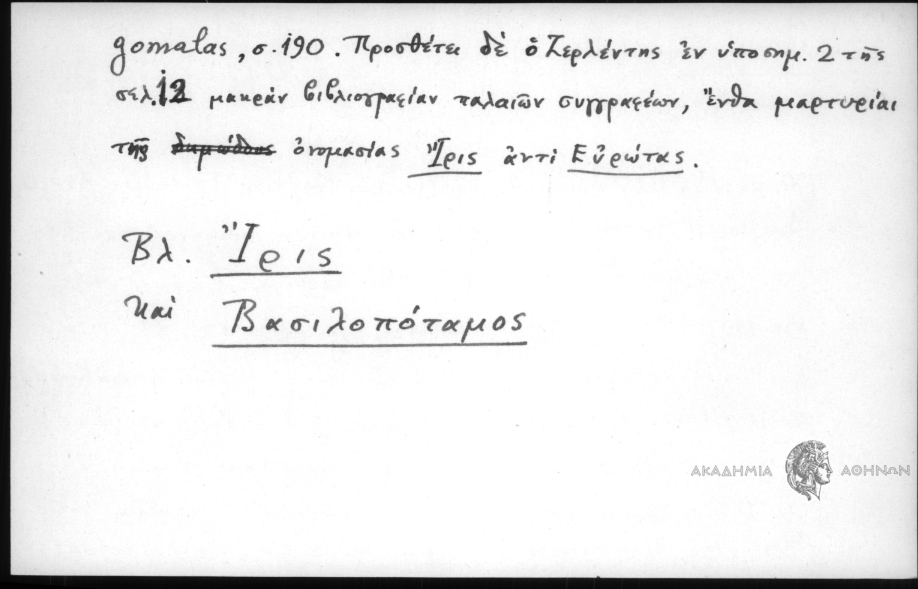 gomalas, σ. 190. Προσθέτει δὲ ὁ Ζερλέντης ἐν ὑποσημ. 2 τῆς
σελ. 12 μακρὰν βιβλιογραφίαν παλαιῶν συγγραφέων, ἔνθα μαρτυρίαι
τῆς δημώδους ὀνομασίας Ἴρις ἀντὶ Εὐρώτας.
Βλ. Ἴρις
καὶ Βασιλοπόταμος
ΑΚΑΔΗΜΙΑ ΑΘΗΝΩΝ